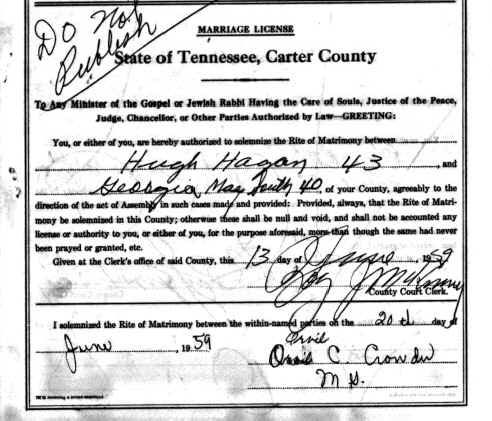 Do Not
Publish
MARRIAGE LICENSE
State of Tennessee, Carter County
To Any Minister of the Gospel or Jewish Rabbi Having the Care of Souls, Justice of the Peace,
Judge, Chancellor, or Other Parties Authorized by Law—GREETING:
You, or either of you, are hereby authorized to solemnize the Rite of Matrimony between
Hugh Hagan 43, and
Georgia Mae Smith 40, of your County, agreeably to the
direction of the act of Assembly in such cases made and provided: Provided, always, that the Rite of Matri-
mony be solemnized in this County; otherwise these shall be null and void, and shall not be accounted any
license or authority to you, or either of you, for the purpose aforesaid, more than though the same had never
been prayed or granted, etc.
Given at the Clerk's office of said County, this 13 day of June 1959
County Court Clerk.
I solemnized the Rite of Matrimony between the within-named parties on the 20th day of
June, 1959
Orvil
C. Crowder
M G.